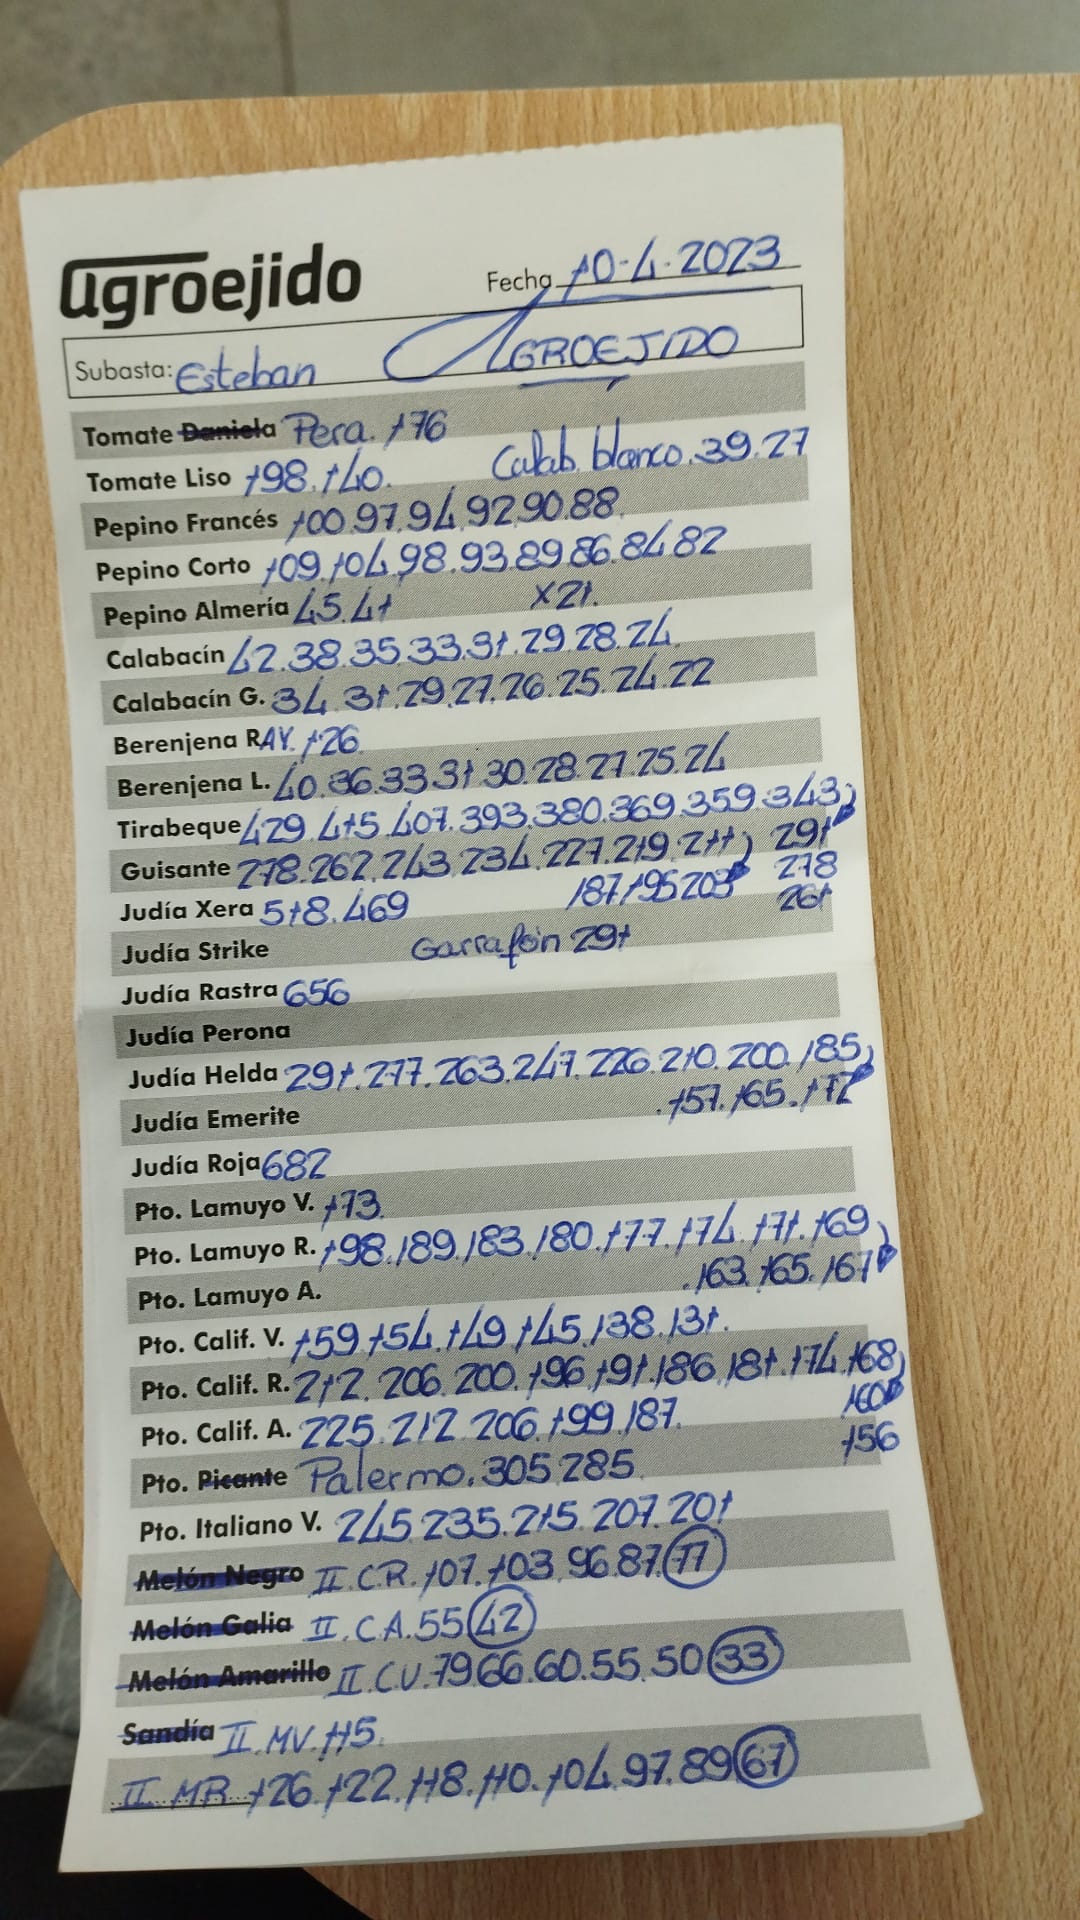 agroejido
Fecha 10-4-2023
Subasta: Esteban AGROEJIDO
Tomate Daniela Pera. 176
Tomate Liso 198.140. Calab. blanco.39.27
Pepino Francés 100.97.94.92.90.88.
Pepino Corto 109.104.98.93.89.86.84.82
Pepino Almería 45.41 X21.
Calabacín 42.38.35.33.31.29.28.24.
Calabacín G. 34.31.29.27.26.25.24.22
Berenjena RAY. 126
Berenjena L. 40.36.33.31.30.28.27.25.24
Tirabeque 429.415.407.393.380.369.359.343)
Guisante 278.262.243.234.227.219.211) 291
Judía Xera 518.469 187.195.203 278
261
Judía Strike Garrafón 291
Judía Rastra 656
Judía Perona
Judía Helda 291.277.263.247.226.210.200.185)
Judía Emerite .157.165.172
Judía Roja 682
Pto. Lamuyo V. 173.
Pto. Lamuyo R. 198.189.183.180.177.174.171.169)
Pto. Lamuyo A. .163.165.167
Pto. Calif. V. 159.154.149.145.138.131.
Pto. Calif. R. 212.206.200.196.191.186.181.174.168)
Pto. Calif. A. 225.212.206.199.187. 160
156
Pto. Picante Palermo.305.285.
Pto. Italiano V. 245.235.215.207.201
Melón Negro II.C.R.107.103.96.87.77
Melón Galia II.C.A.55 42
Melón Amarillo II.CV.79.66.60.55.50 33
Sandía II.MV.115.
II.MR.126.122.118.110.104.97.89 67